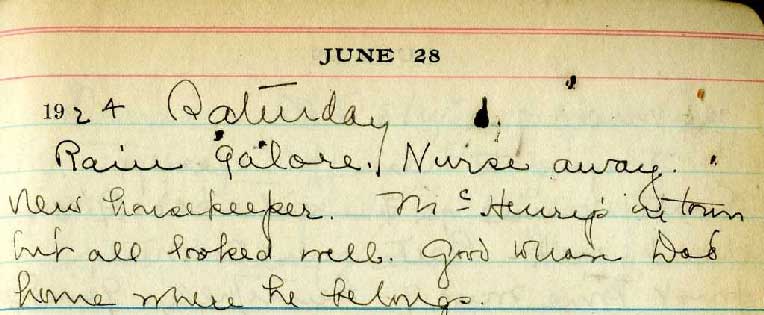 JUNE 28
1924 Saturday
Rain galore. Nurse away.
New housekeeper. McHenry's in town
but all looked well. Good when Dad
home where he belongs.